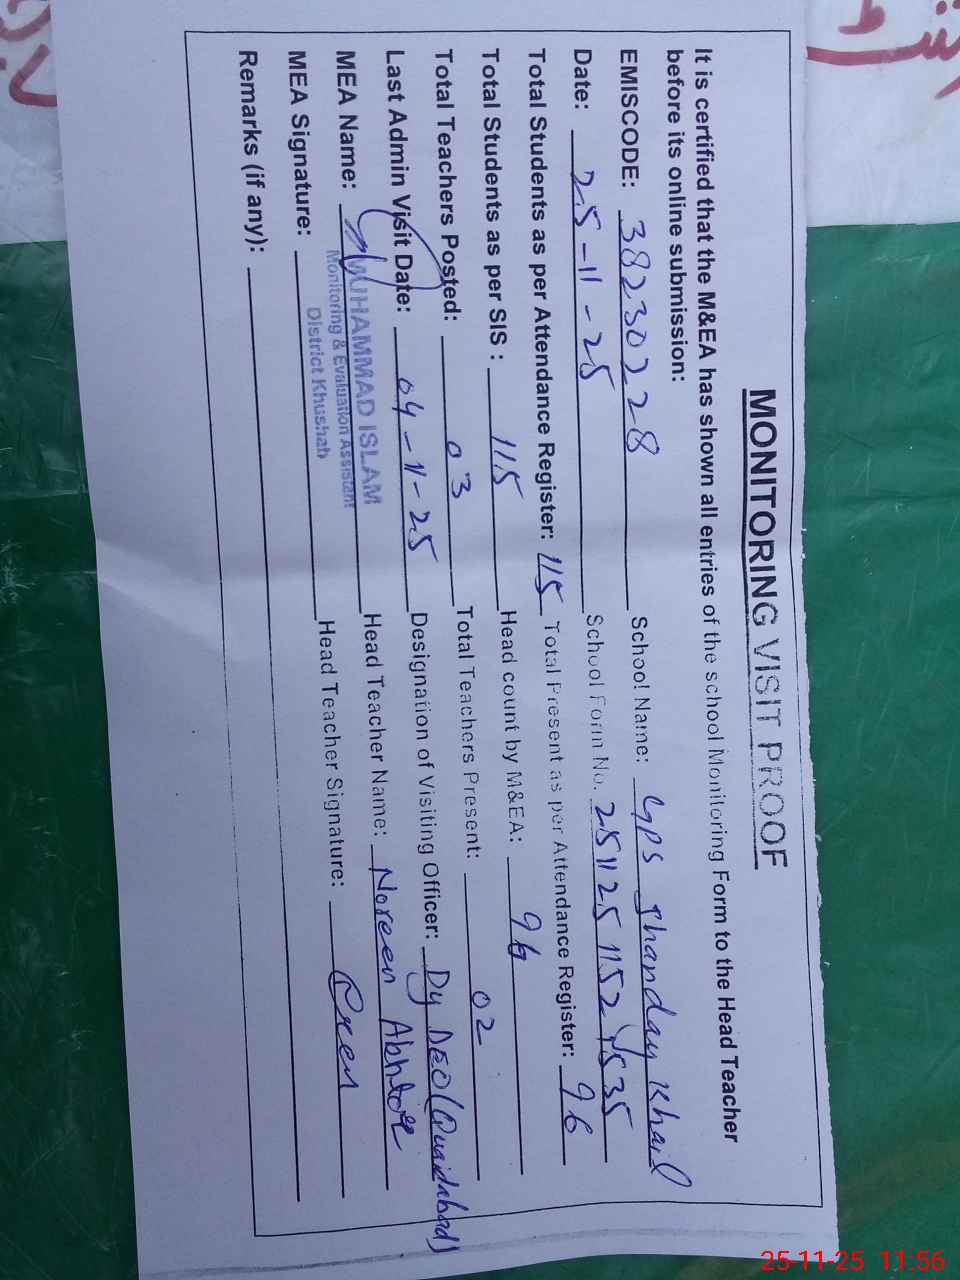 MONITORING VISIT PROOF
It is certified that the M&EA has shown all entries of the school Monitoring Form to the Head Teacher
before its online submission:
EMISCODE: 38230228 School Name: GPS Jhanday Khail
Date: 25-11-25 School Form No. 25112511524535
Total Students as per Attendance Register: 115 Total Present as per Attendance Register: 96
Total Students as per SIS : 115 Head count by M&EA: 96
Total Teachers Posted: 03 Total Teachers Present: 02
Last Admin Visit Date: 04-11-25 Designation of Visiting Officer: Dy DEO (Quaidabad)
MEA Name: MUHAMMAD ISLAM Head Teacher Name: Noreen
Monitoring & Evaluation Assistant
District Khushab
MEA Signature: Head Teacher Signature:
Remarks (if any):
25-11-25 11:56